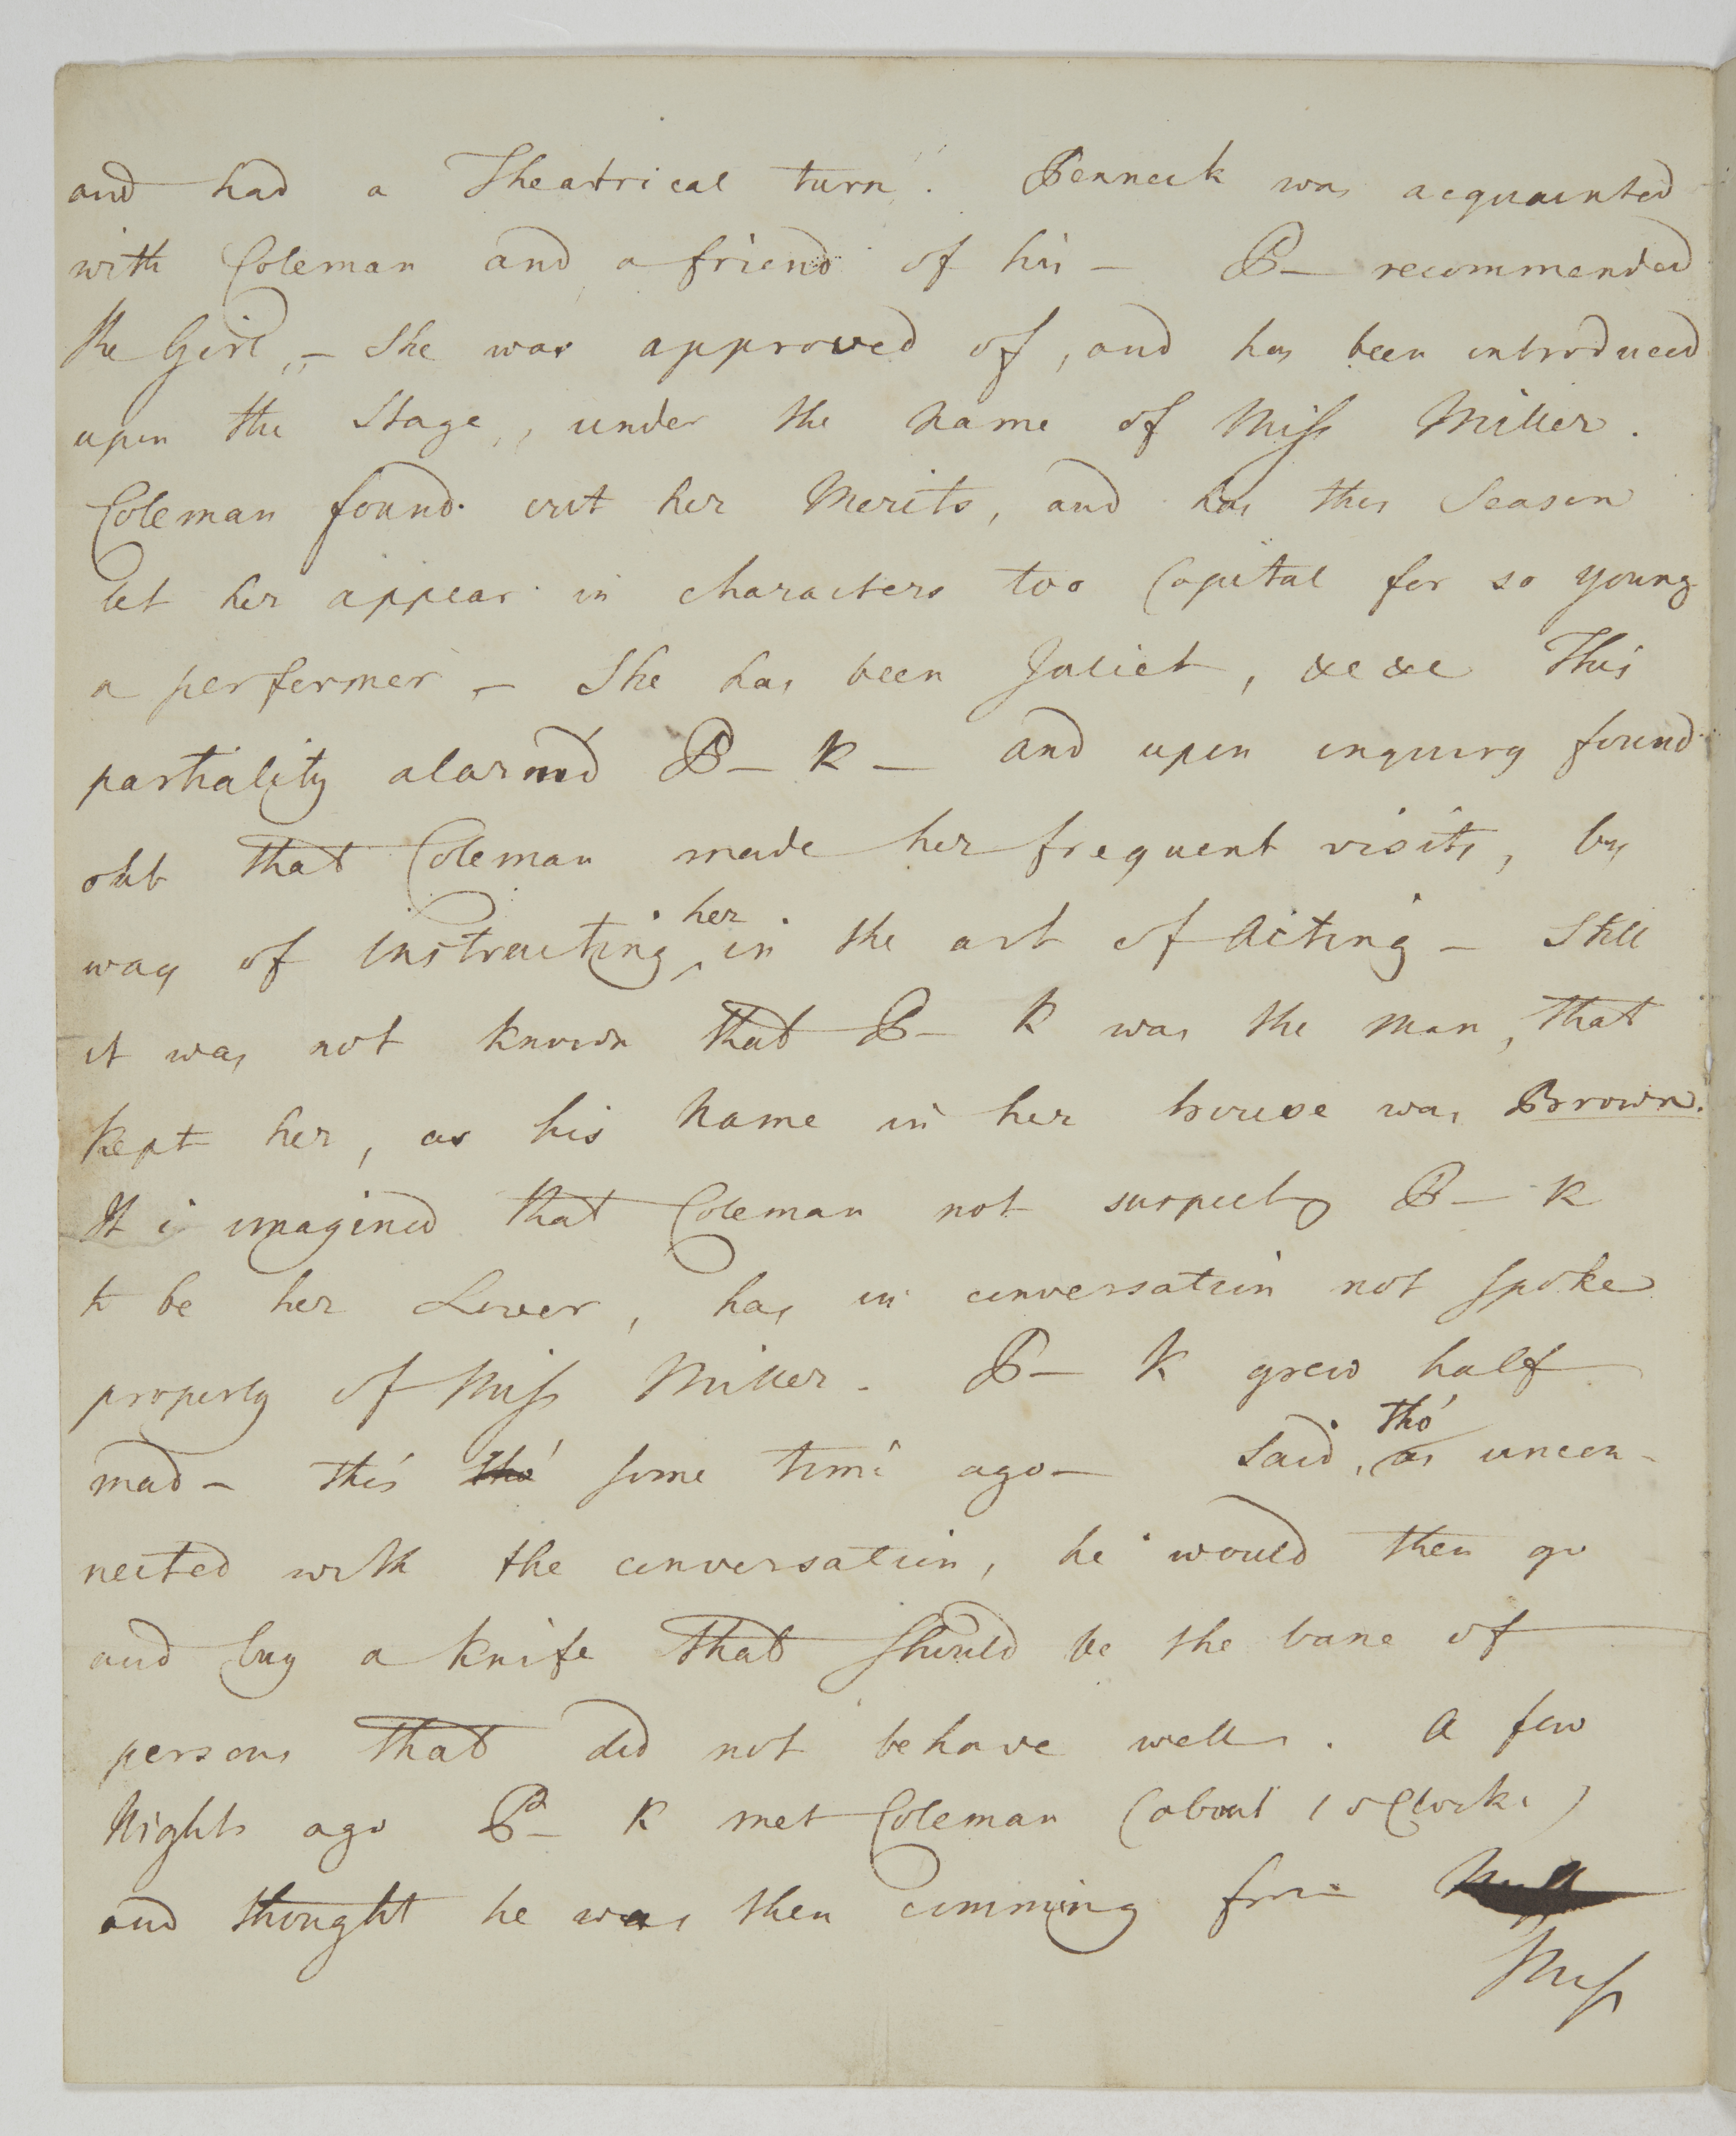 and had a Theatrical turn. Penneck was acquainted
with Coleman and a friend of his — P— recommended
the Girl, — She was approved of, and has been introduced
upon the Stage, under the Name of Miſs Miller.
Coleman found out her Merits, and has this Season
let her appear in characters too Capital for so young
a performer — She has been Juliet, &c &c This
partiality alarmd P— k — and upon inquiry found
out that Coleman made her frequent visits, by
her
way of instructing ^ in the art of Acting — Still
it was not known that P— k was the man, that
kept her, as his Name in her house was Brown.
It is imagined that Coleman not suspectg P— k
to be her Lover, has in conversation not spoke
properly of Miſs Miller. P— k grew half
tho'
mad — this tho' some time ago — Said, as uncon-
nected with the conversation, he would then go
and buy a knife that should be the bane of
persons that did not behave well. A few
Nights ago P— k met Coleman (about 10 Clock)
and thought he was then comming from
Miſs